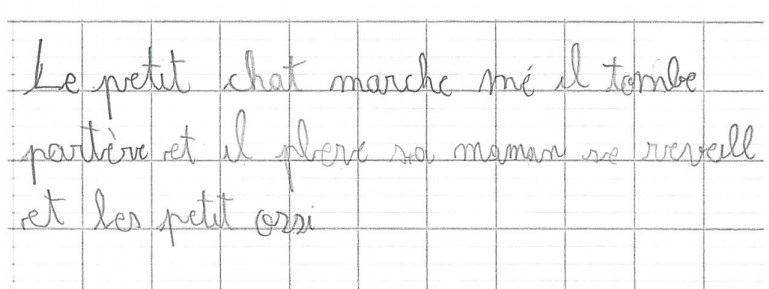 Le petit chat marche mé il tombe
partère et il plere sa maman se reveill
et les petit ossi